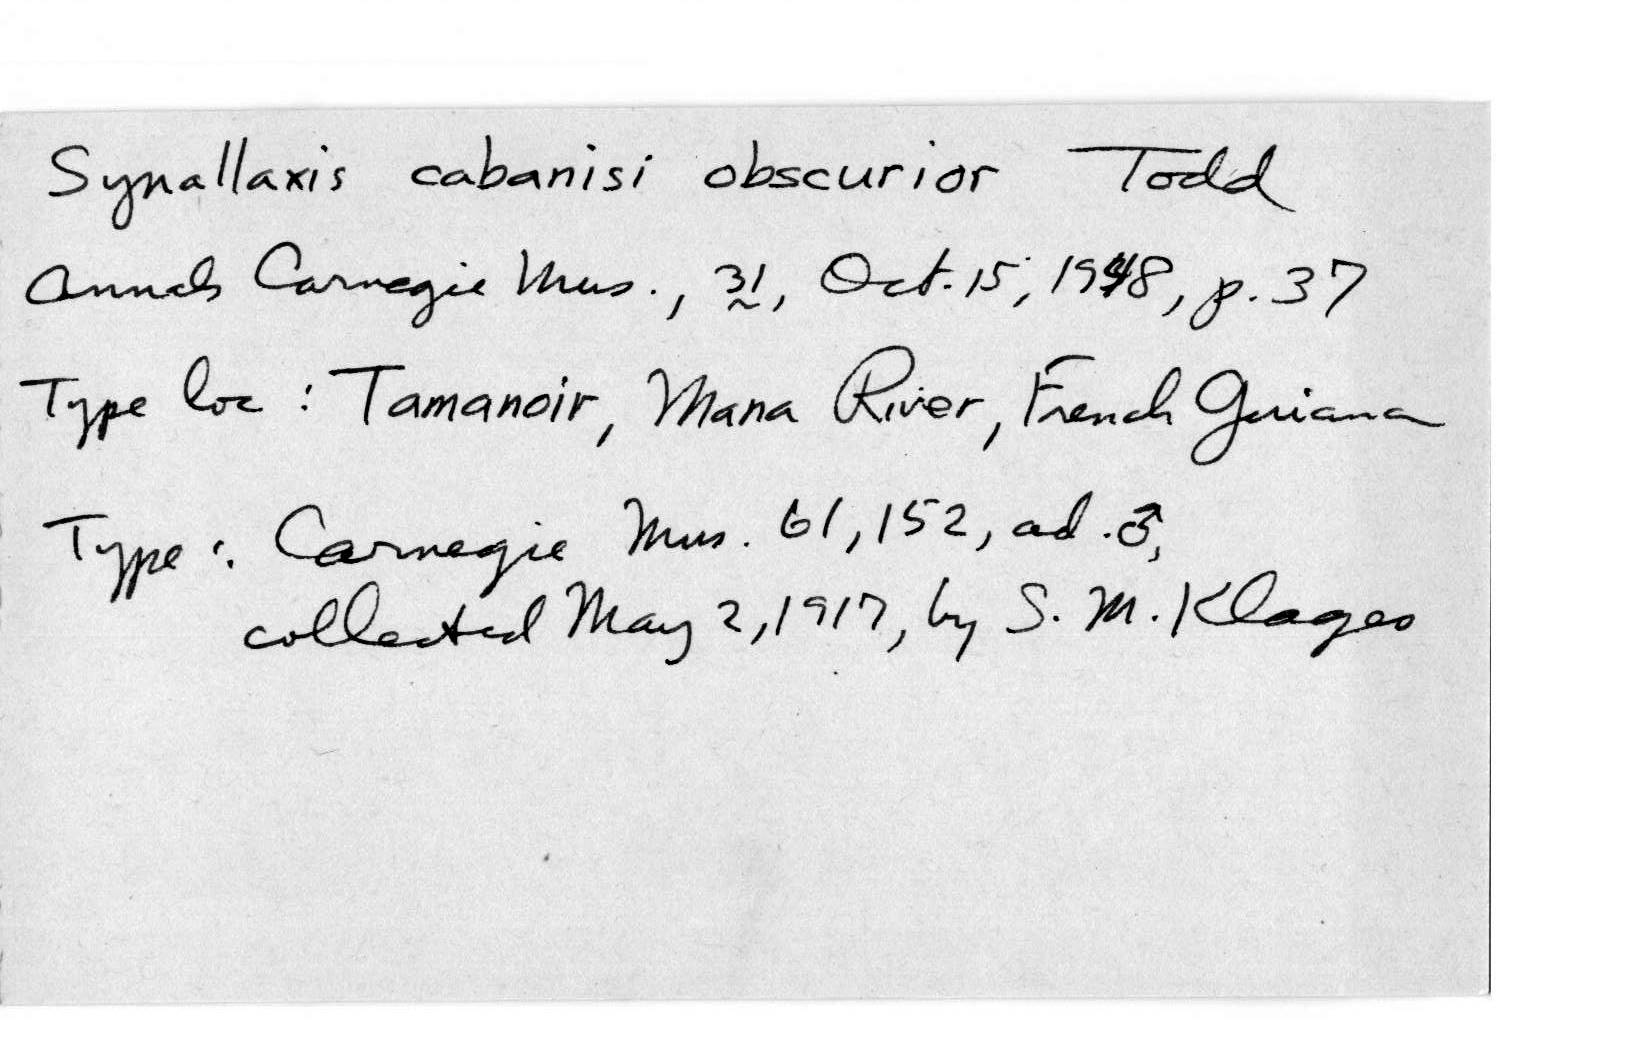 Synallaxis cabanisi obscurior Todd
Annals Carnegie Mus., 31, Oct. 15, 1948, p. 37
Type loc : Tamanoir, Mana River, French Guiana
Type : Carnegie Mus. 61,152, ad. ♂,
collected May 2, 1917, by S. M. Klages